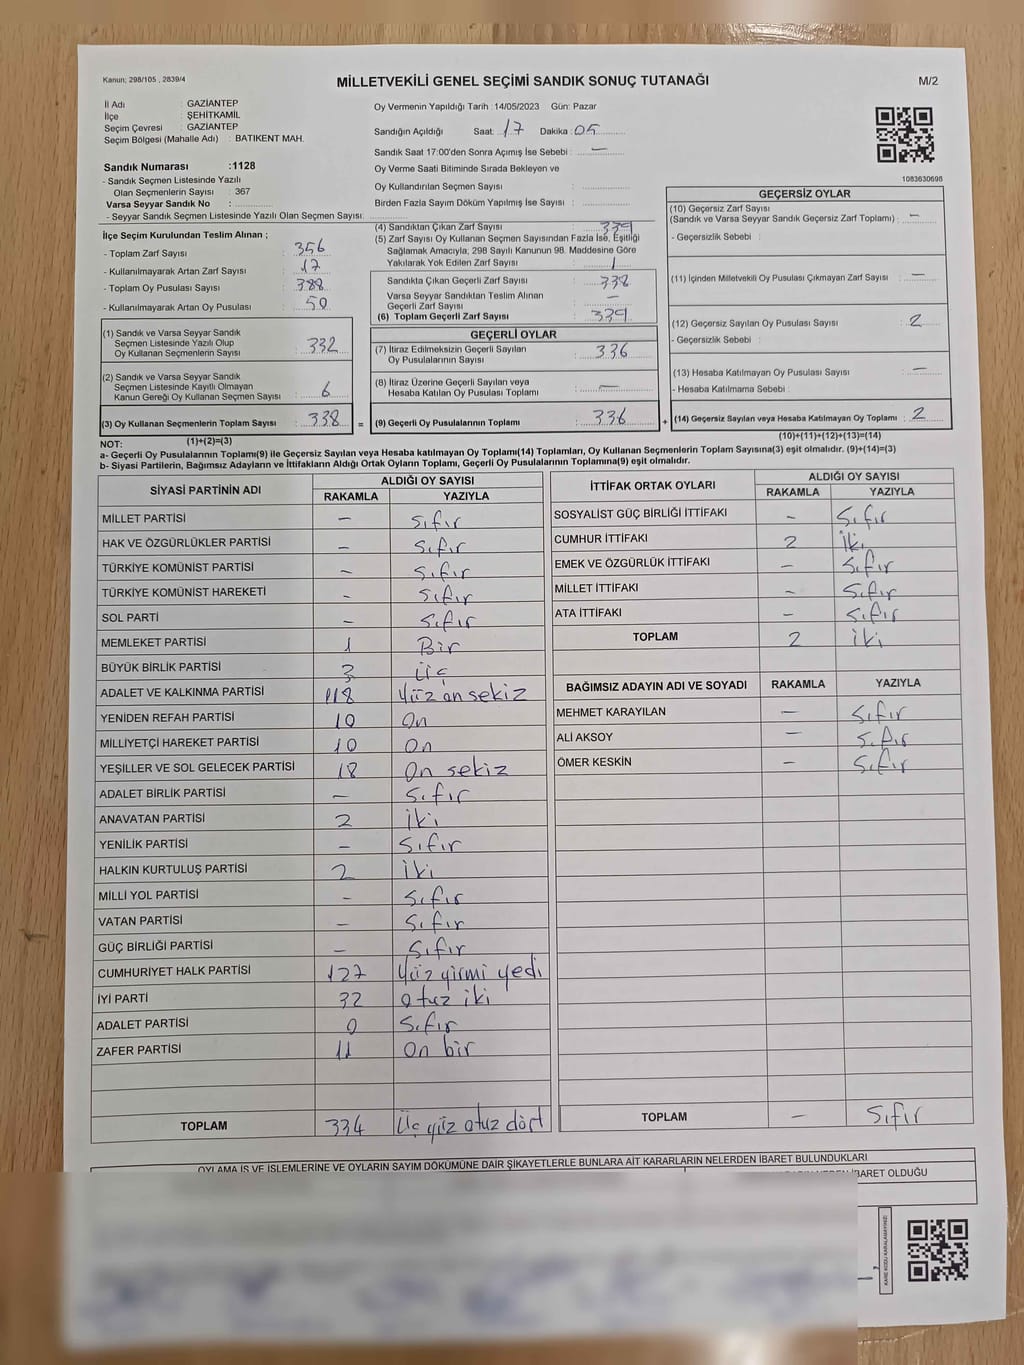 Kanun; 298/105 , 2839/4
MİLLETVEKİLİ GENEL SEÇİMİ SANDIK SONUÇ TUTANAĞI
M/2
İl Adı : GAZİANTEP
İlçe : ŞEHİTKAMİL
Seçim Çevresi : GAZİANTEP
Seçim Bölgesi (Mahalle Adı) : BATIKENT MAH.
Sandık Numarası :1128
- Sandık Seçmen Listesinde Yazılı
Olan Seçmenlerin Sayısı : 367
Varsa Seyyar Sandık No :
- Seyyar Sandık Seçmen Listesinde Yazılı Olan Seçmen Sayısı:
Oy Vermenin Yapıldığı Tarih :14/05/2023 Gün: Pazar
Sandığın Açıldığı Saat: 17 Dakika: 05
Sandık Saat 17:00'den Sonra Açımış İse Sebebi : —
Oy Verme Saati Bitiminde Sırada Bekleyen ve
Oy Kullandırılan Seçmen Sayısı :
Birden Fazla Sayım Döküm Yapılmış İse Sayısı :
1083630698
İlçe Seçim Kurulundan Teslim Alınan ;
- Toplam Zarf Sayısı : 356
- Kullanılmayarak Artan Zarf Sayısı : 17
- Toplam Oy Pusulası Sayısı : 388
- Kullanılmayarak Artan Oy Pusulası : 50
(1) Sandık ve Varsa Seyyar Sandık
Seçmen Listesinde Yazılı Olup
Oy Kullanan Seçmenlerin Sayısı : 332
(2) Sandık ve Varsa Seyyar Sandık
Seçmen Listesinde Kayıtlı Olmayan
Kanun Gereği Oy Kullanan Seçmen Sayısı : 6
(3) Oy Kullanan Seçmenlerin Toplam Sayısı : 338
(4) Sandıktan Çıkan Zarf Sayısı : 339
(5) Zarf Sayısı Oy Kullanan Seçmen Sayısından Fazla İse, Eşitliği
Sağlamak Amacıyla, 298 Sayılı Kanunun 98. Maddesine Göre
Yakılarak Yok Edilen Zarf Sayısı : 1
Sandıkta Çıkan Geçerli Zarf Sayısı : 338
Varsa Seyyar Sandıktan Teslim Alınan
Geçerli Zarf Sayısı : —
(6) Toplam Geçerli Zarf Sayısı : 339
GEÇERLİ OYLAR
(7) İtiraz Edilmeksizin Geçerli Sayılan
Oy Pusulalarının Sayısı : 336
(8) İtiraz Üzerine Geçerli Sayılan veya
Hesaba Katılan Oy Pusulası Toplamı : —
= (9) Geçerli Oy Pusulalarının Toplamı : 336
GEÇERSİZ OYLAR
(10) Geçersiz Zarf Sayısı
(Sandık ve Varsa Seyyar Sandık Geçersiz Zarf Toplamı) : —
- Geçersizlik Sebebi :
(11) İçinden Milletvekili Oy Pusulası Çıkmayan Zarf Sayısı : —
(12) Geçersiz Sayılan Oy Pusulası Sayısı : 2
- Geçersizlik Sebebi :
(13) Hesaba Katılmayan Oy Pusulası Sayısı : —
- Hesaba Katılmama Sebebi :
+ (14) Geçersiz Sayılan veya Hesaba Katılmayan Oy Toplamı : 2
NOT: (1)+(2)=(3)
(10)+(11)+(12)+(13)=(14)
a- Geçerli Oy Pusulalarının Toplamı(9) ile Geçersiz Sayılan veya Hesaba katılmayan Oy Toplamı(14) Toplamları, Oy Kullanan Seçmenlerin Toplam Sayısına(3) eşit olmalıdır. (9)+(14)=(3)
b- Siyasi Partilerin, Bağımsız Adayların ve İttifakların Aldığı Ortak Oyların Toplamı, Geçerli Oy Pusulalarının Toplamına(9) eşit olmalıdır.
SİYASİ PARTİNİN ADI ALDIĞI OY SAYISI
RAKAMLA YAZIYLA
MİLLET PARTİSİ — Sıfır
HAK VE ÖZGÜRLÜKLER PARTİSİ — Sıfır
TÜRKİYE KOMÜNİST PARTİSİ — Sıfır
TÜRKİYE KOMÜNİST HAREKETİ — Sıfır
SOL PARTİ — Sıfır
MEMLEKET PARTİSİ 1 Bir
BÜYÜK BİRLİK PARTİSİ 3 üç
ADALET VE KALKINMA PARTİSİ 118 Yüz on sekiz
YENİDEN REFAH PARTİSİ 10 On
MİLLİYETÇİ HAREKET PARTİSİ 10 On
YEŞİLLER VE SOL GELECEK PARTİSİ 18 On sekiz
ADALET BİRLİK PARTİSİ — Sıfır
ANAVATAN PARTİSİ 2 İki
YENİLİK PARTİSİ — Sıfır
HALKIN KURTULUŞ PARTİSİ 2 İki
MİLLİ YOL PARTİSİ — Sıfır
VATAN PARTİSİ — Sıfır
GÜÇ BİRLİĞİ PARTİSİ — Sıfır
CUMHURİYET HALK PARTİSİ 127 Yüz yirmi yedi
İYİ PARTİ 32 Otuz iki
ADALET PARTİSİ 0 Sıfır
ZAFER PARTİSİ 11 On bir
TOPLAM 334 Üç yüz otuz dört
İTTİFAK ORTAK OYLARI ALDIĞI OY SAYISI
RAKAMLA YAZIYLA
SOSYALİST GÜÇ BİRLİĞİ İTTİFAKI — Sıfır
CUMHUR İTTİFAKI 2 İki
EMEK VE ÖZGÜRLÜK İTTİFAKI — Sıfır
MİLLET İTTİFAKI — Sıfır
ATA İTTİFAKI — Sıfır
TOPLAM 2 İki
BAĞIMSIZ ADAYIN ADI VE SOYADI RAKAMLA YAZIYLA
MEHMET KARAYILAN — Sıfır
ALİ AKSOY — Sıfır
ÖMER KESKİN — Sıfır
TOPLAM — Sıfır
OYLAMA İŞ VE İŞLEMLERİNE VE OYLARIN SAYIM DÖKÜMÜNE DAİR ŞİKAYETLERLE BUNLARA AİT KARARLARIN NELERDEN İBARET BULUNDUKLARI
İBARET OLDUĞU
KARE KODU KARALAMAYINIZ!